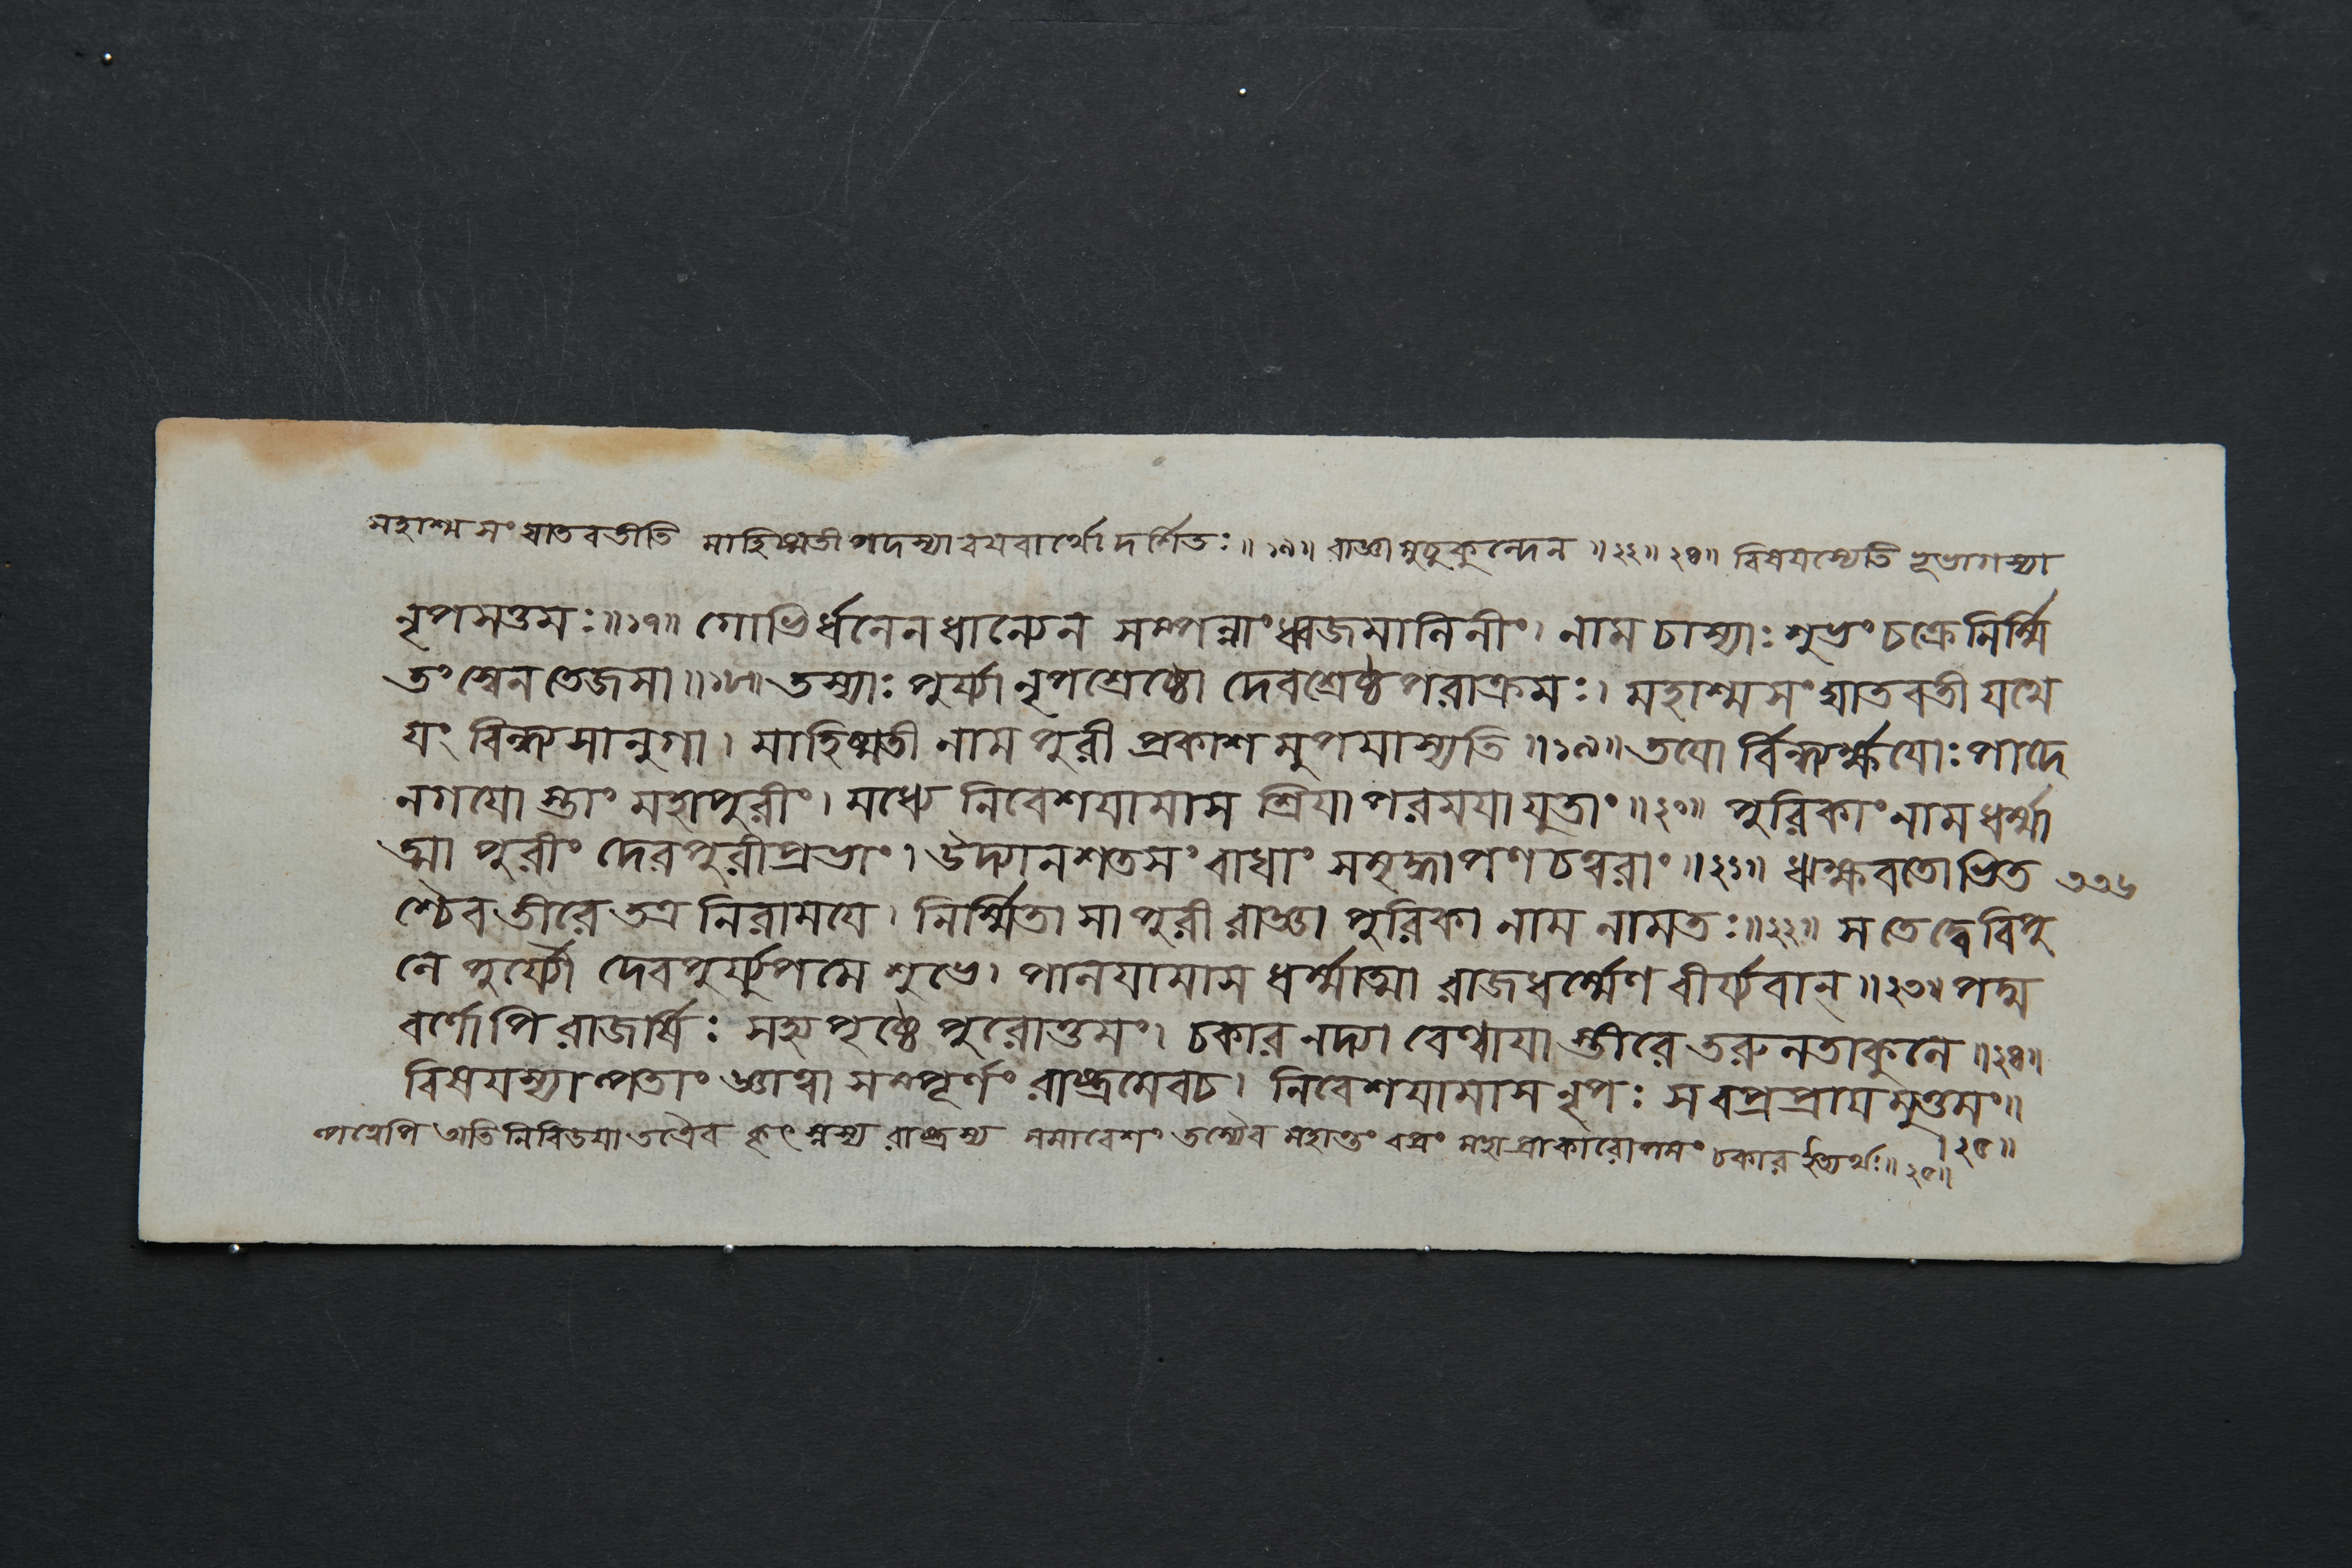 মহাশ্মসংঘাতবতীতি মাহিষ্মতীপদস্যাবয়বার্থো দর্শিতঃ॥১৯॥ রাজ্ঞা মুচুকুন্দেন ॥২২॥২৪॥ বিষয়স্যেতি ভূভাগস্যা
নৃপসত্তমঃ॥১৭॥ গোভির্ধনেন ধান্যেন সম্পন্নাং ধ্বজমালিনীং। নাম চাস্যাঃ শুভং চক্রে নির্ম্মি
তং স্বেন তেজসা॥১৮॥ তস্যাঃ পুর্য্যা নৃপশ্রেষ্ঠো দেবশ্রেষ্ঠপরাক্রমঃ। মহাশ্মসংঘাতবতী যথে
য়ং বিন্ধ্যসানুগা। মাহিষ্মতী নাম পুরী প্রকাশমুপযাস্যতি॥১৯॥ তয়োর্বিন্ধ্যর্ক্ষয়োঃ পাদে
নগয়োস্তাং মহাপুরীং। মধ্যে নিবেশয়ামাস শ্রিয়া পরময়া যুতাং॥২০॥ পুরিকাং নাম ধর্ম্মা
ত্মা পুরীং দেবপুরীপ্রভাং। উদ্যানশতসংবাধাং সমৃদ্ধাপণচত্বরাং॥২১॥ ঋক্ষবতোভিত ৩৩৬
শ্চৈব তীরে তত্র নিরাময়ে। নির্ম্মিতা সা পুরী রাজ্ঞা পুরিকা নাম নামতঃ॥২২॥ স তে দ্বে বিপু
লে পুর্য্যৌ দেবপুর্য্যুপমে শুভে। পালয়ামাস ধর্ম্মাত্মা রাজধর্ম্মেণ বীর্য্যবান্॥২৩॥ পদ্ম
বর্ণোপি রাজর্ষিঃ সহ্যপৃষ্ঠে পুরোত্তমং। চকার নদ্যা বেণ্বায়াস্তীরে তরুলতাকুলে॥২৪॥
বিষয়স্যাল্পতাং জ্ঞাত্বা সম্পূর্ণং রাষ্ট্রমেব চ। নিবেশয়ামাস নৃপঃ স বপ্রপ্রায়মুত্তমং॥
।২৫॥
ল্পত্বেপি অতিনিবিডতয়া তত্রৈব কৃৎস্নস্য রাষ্ট্রস্য সমাবেশং তস্যৈব মহান্তং বপ্রং মহাপ্রাকারোপমং চকারেত্যর্থঃ॥২৫॥